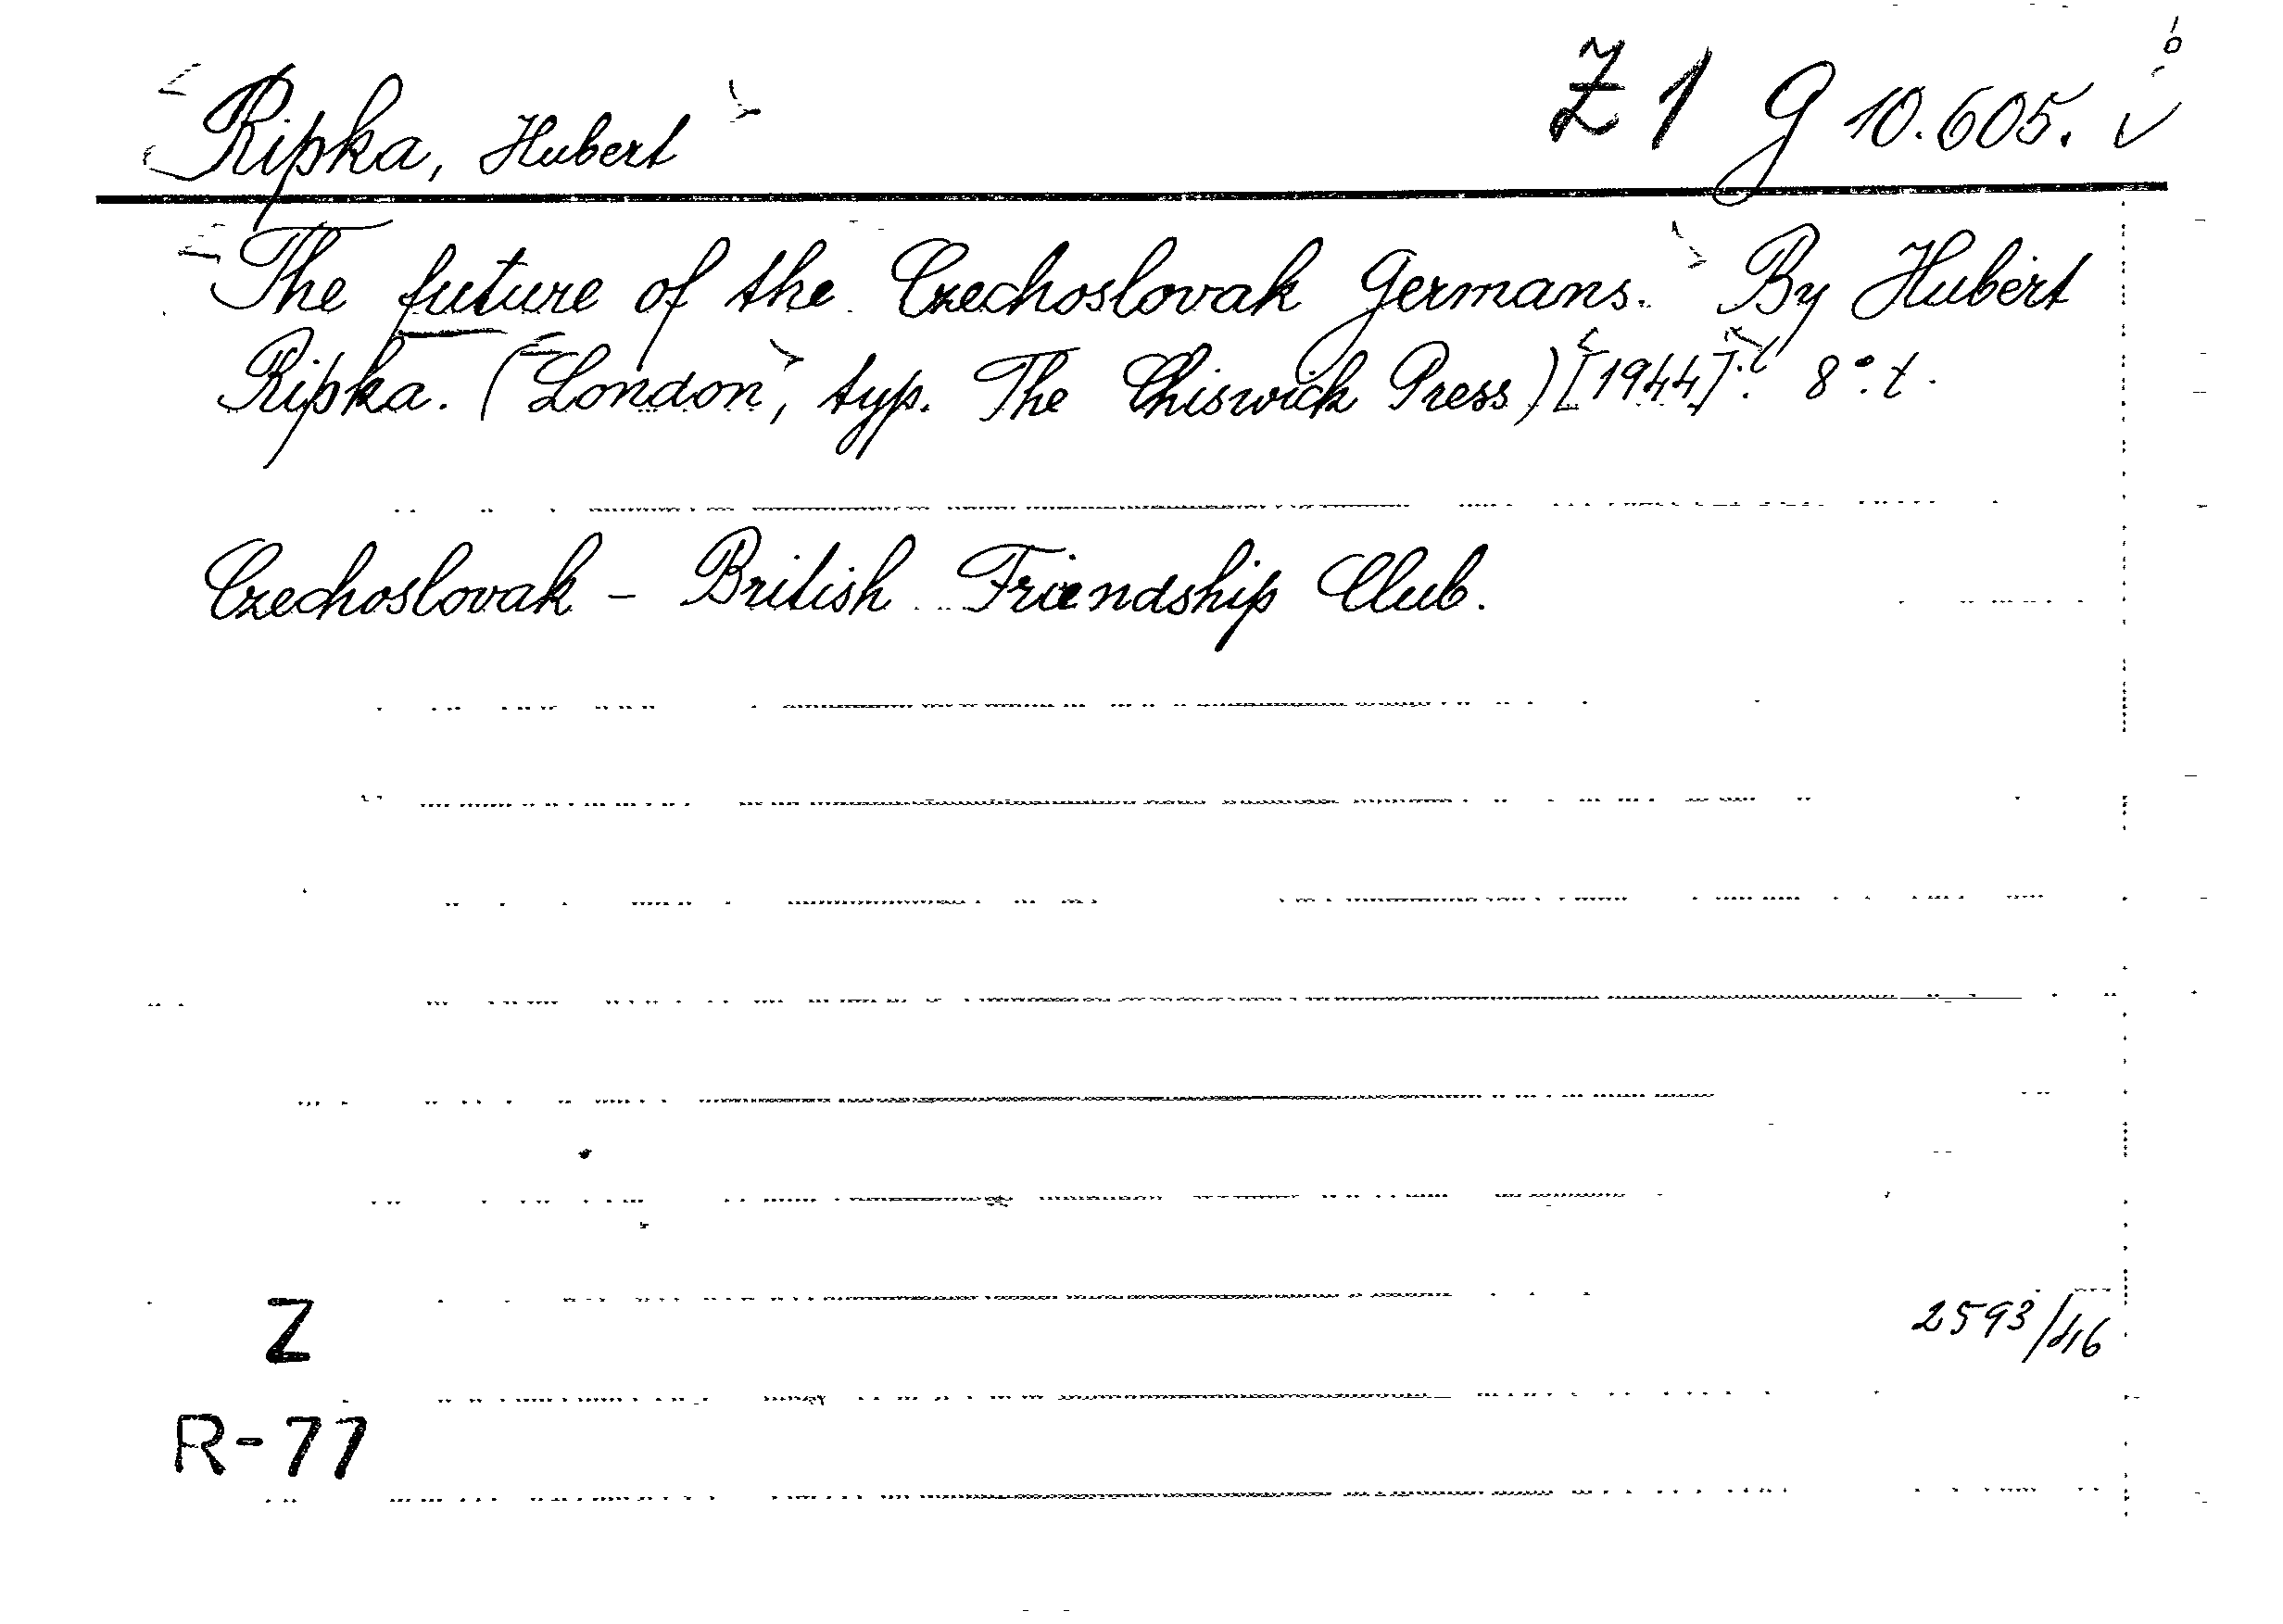 Ripka, Hubert Z 1 G 10.605.
The future of the Czechoslovak Germans. By Hubert
Ripka. (London, typ. The Chiswick Press) [1944]. 8°. t.
Czechoslovak - British Friendship Club.
Z 2593/46
R-77